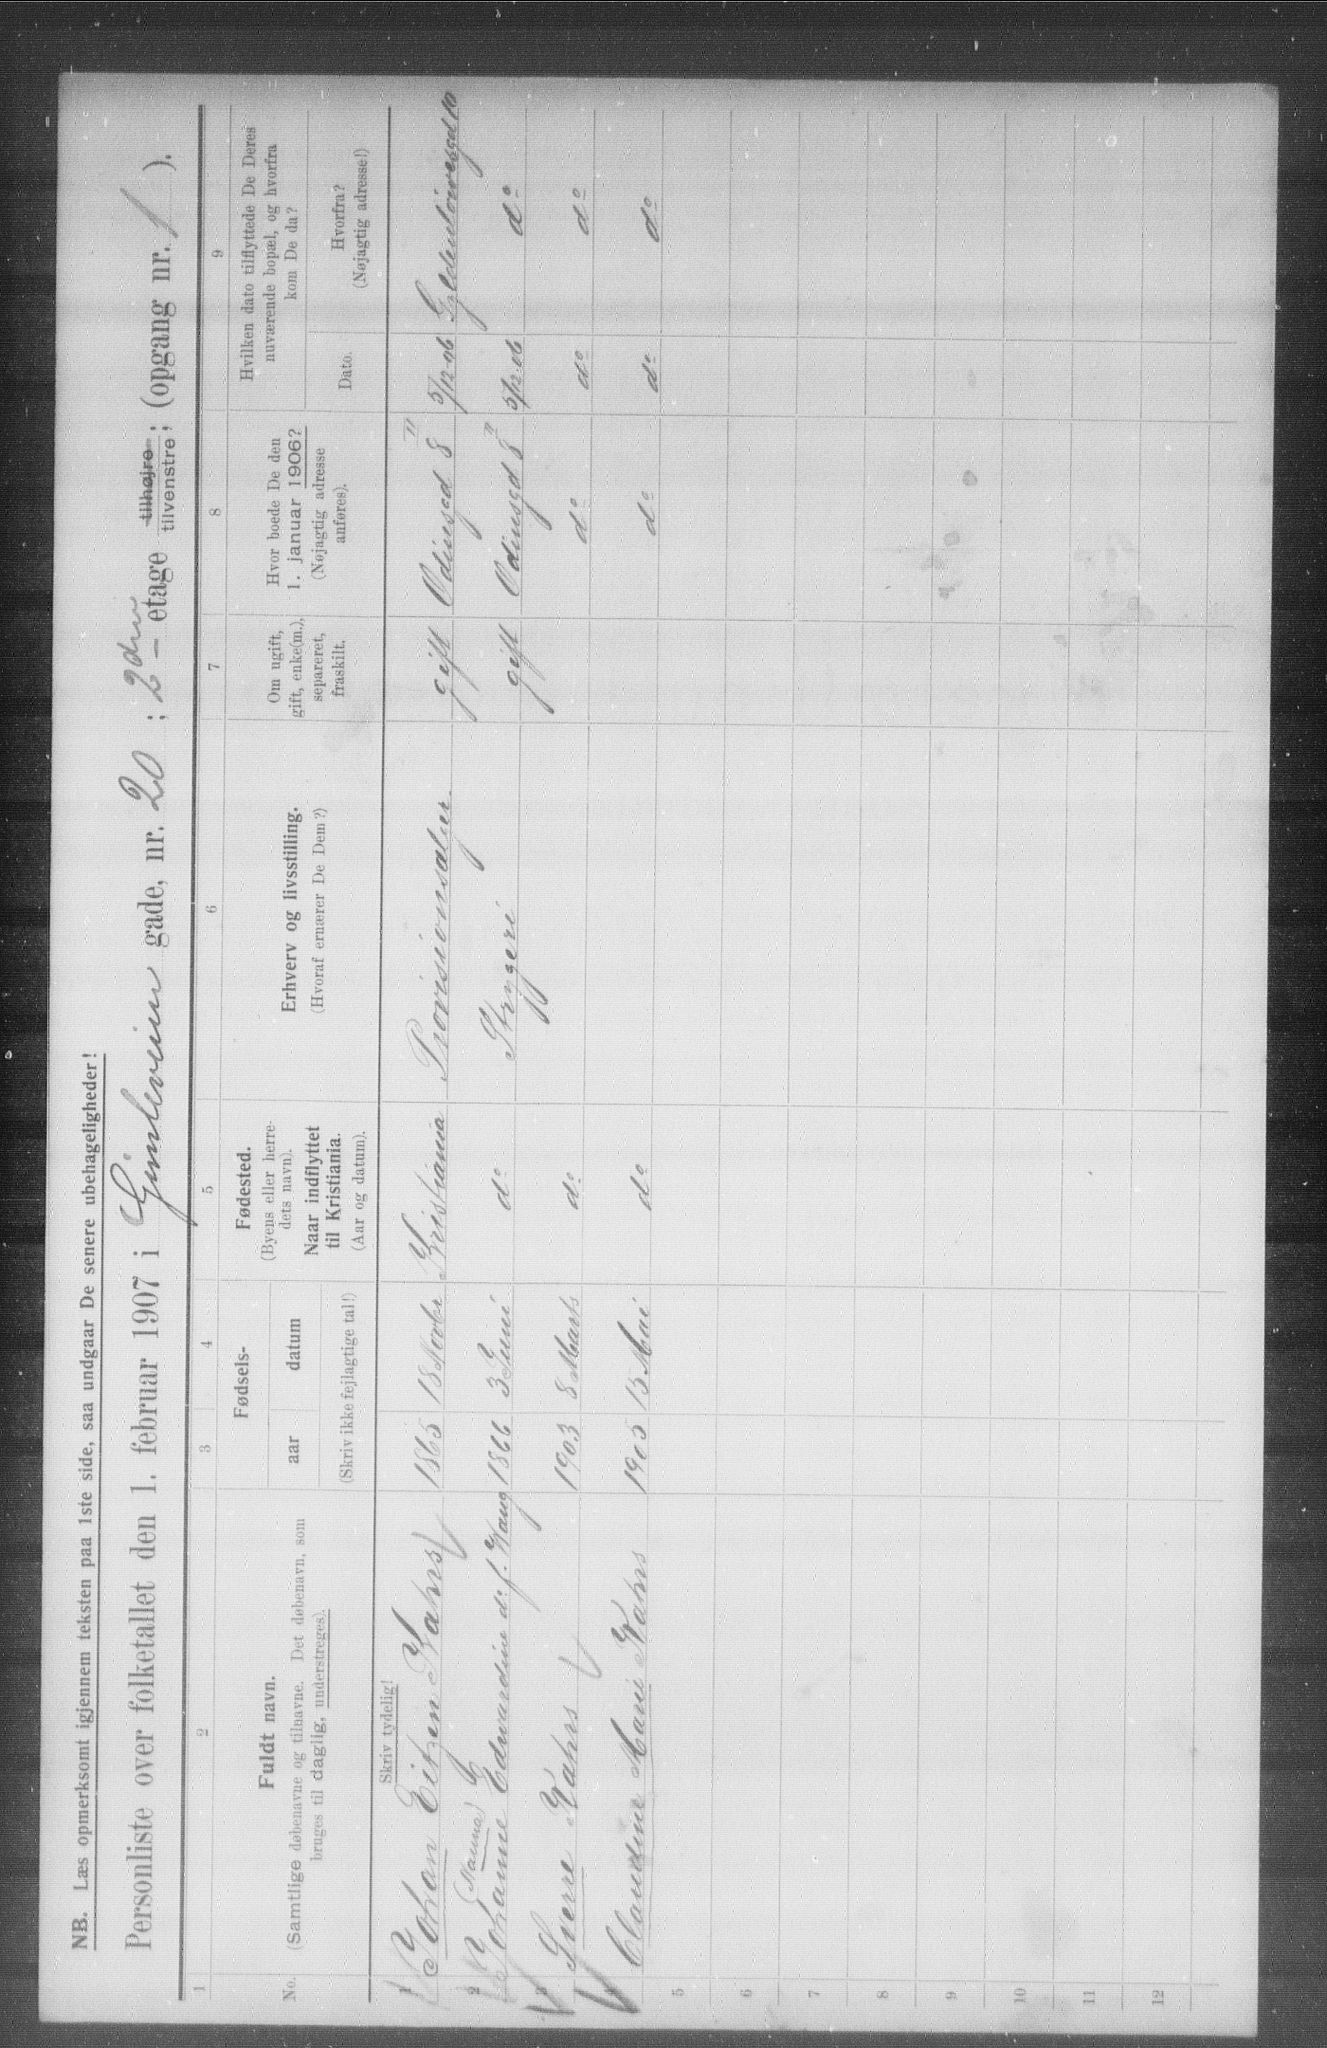 NB. Læs opmerksomt igjennem teksten paa 1ste side, saa undgaar De senere ubehageligheder!
Personliste over folketallet den 1. februar 1907 i Gimleveien gade, nr. 20 ; 2den – etage tilhøjre tilvenstre ; (opgang nr. 1 ).
1 2 3 4 5 6 7 8 9
No.
Fuldt navn.
(Samtlige døbenavne og tilnavne. Det døbenavn, som
bruges til daglig, understreges).
Fødsels-
aar datum
(Skriv ikke fejlagtige tal!)
Fødested.
(Byens eller herre-
dets navn).
Naar indflyttet
til Kristiania.
(Aar og datum).
Erhverv og livsstilling.
(Hvoraf ernærer De Dem?)
Om ugift,
gift, enke(m.),
separeret,
fraskilt.
Hvor boede De den
1. januar 1906?
(Nøjagtig adresse
anføres).
Hvilken dato tilflyttede De Deres
nuværende bopæl, og hvorfra
kom De da?
Dato.
Hvorfra?
(Nøjagtig adresse!)
Skriv tydelig!
1 Johan Eitzen Kahrs 1865 18 Novbr Kristiania Provisionsalgur. gift Odinsgd 8 II 5/12 06 Gyldenløvesgd 10
(Nanna)
2 Johanne Edvardine do f. Haug 1866 3 Juni do Strygeri gift Odinsgd 8 II 5/12 06 do
3 Sverre Kahrs 1903 8 Marts do do do do
4 Claudine Marie Kahrs 1905 13 Mai do do do do
5
6
7
8
9
10
11
12